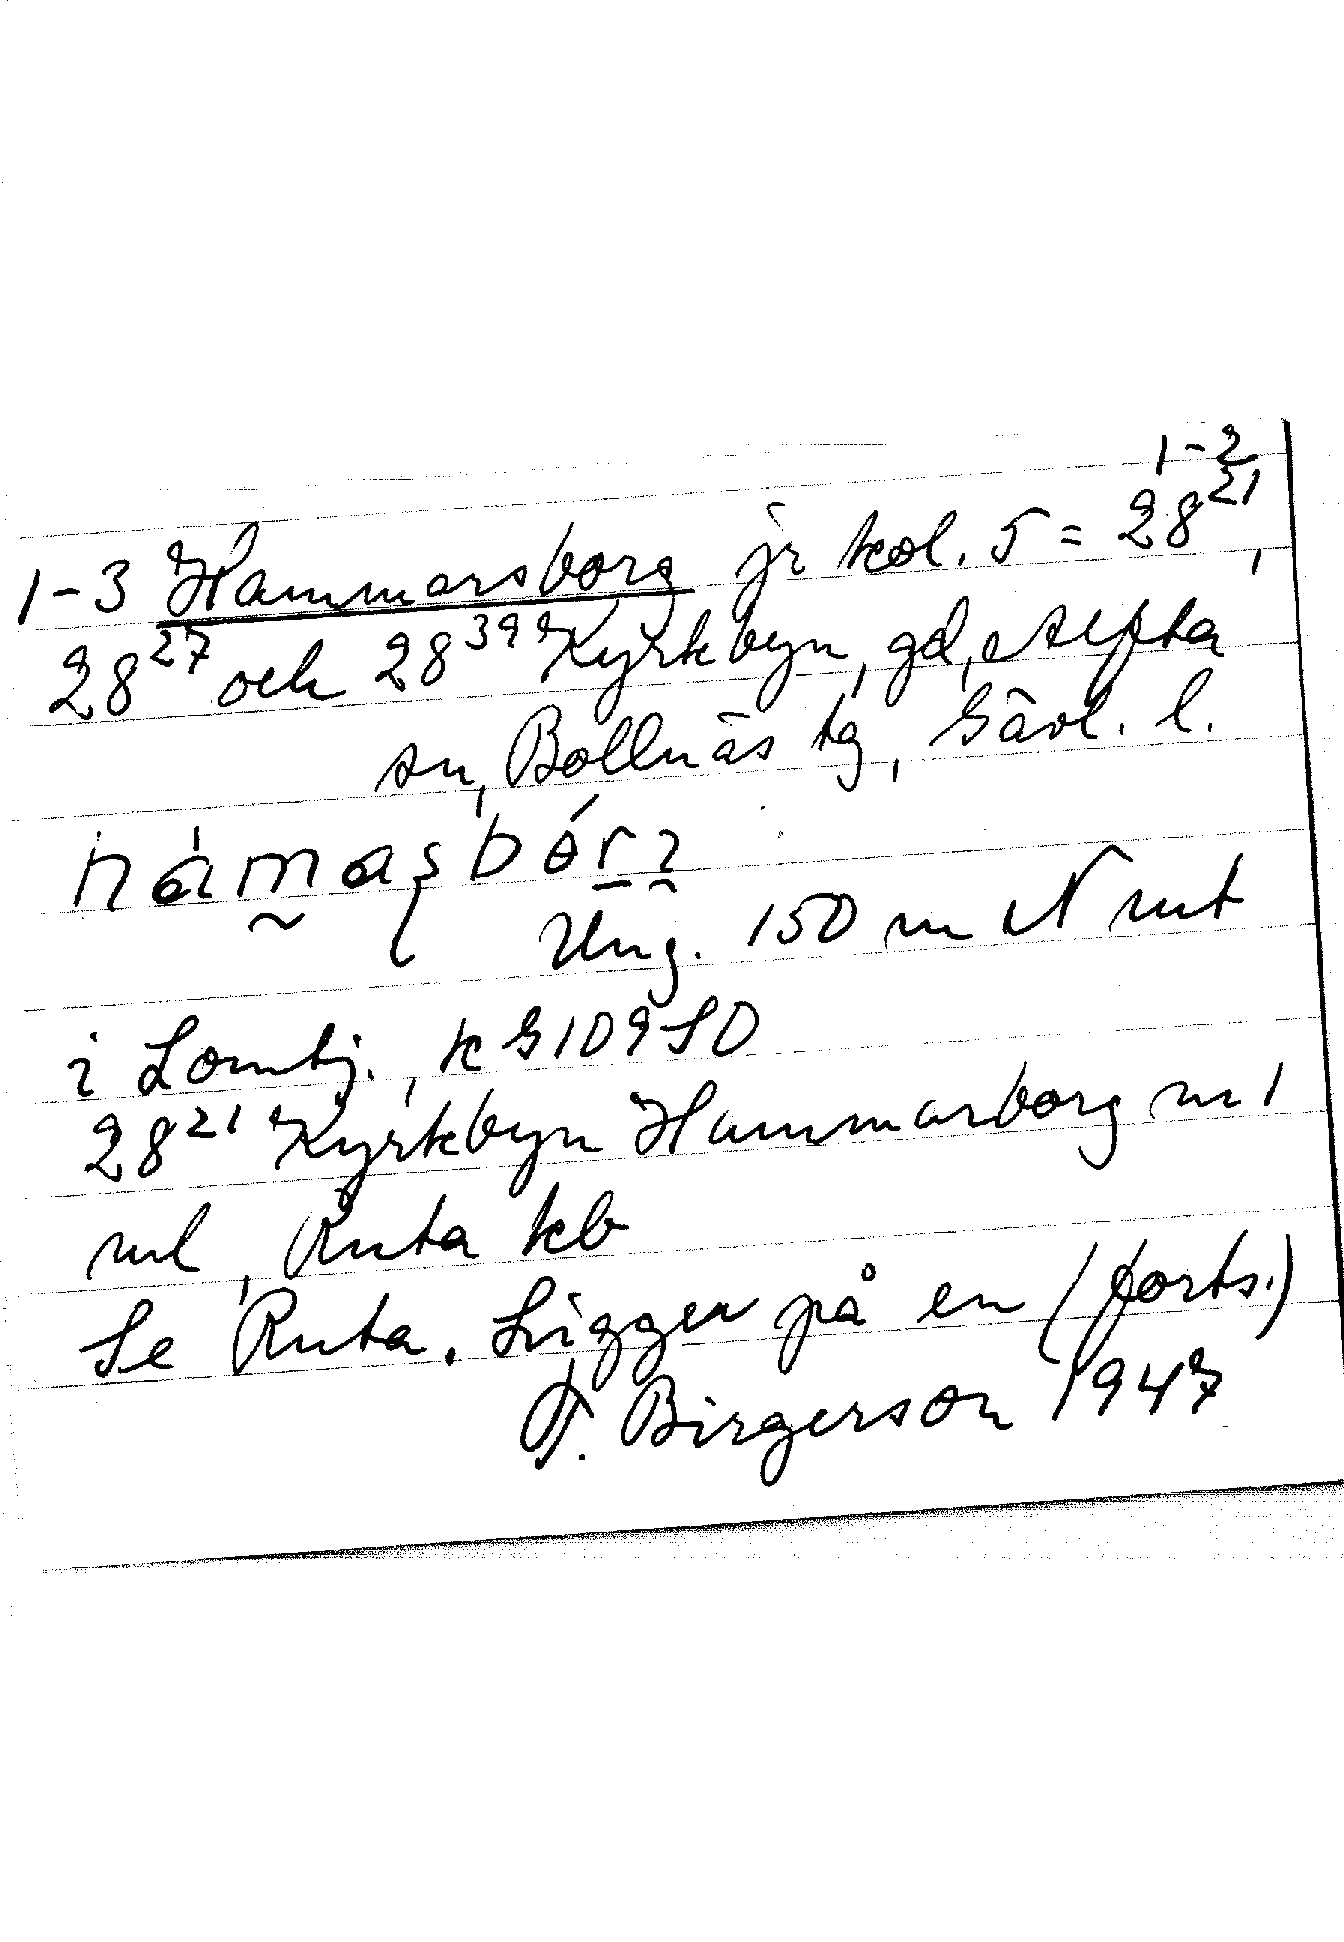 1-2
1-3 Hammarsborg jr kol. 5 = 28²¹,
28²⁷ och 28³⁹ Kyrkbyn, gd, Alfta
sn, Bollnäs tg, Gävl. l.
Ung. 150 m N mt
i Lomtj., k G 109 SO
28²¹ Kyrkbyn Hammarborg m 1
ml, Ruta kb
Se Ruta. Ligger på en (forts.)
F. Birgerson 1947